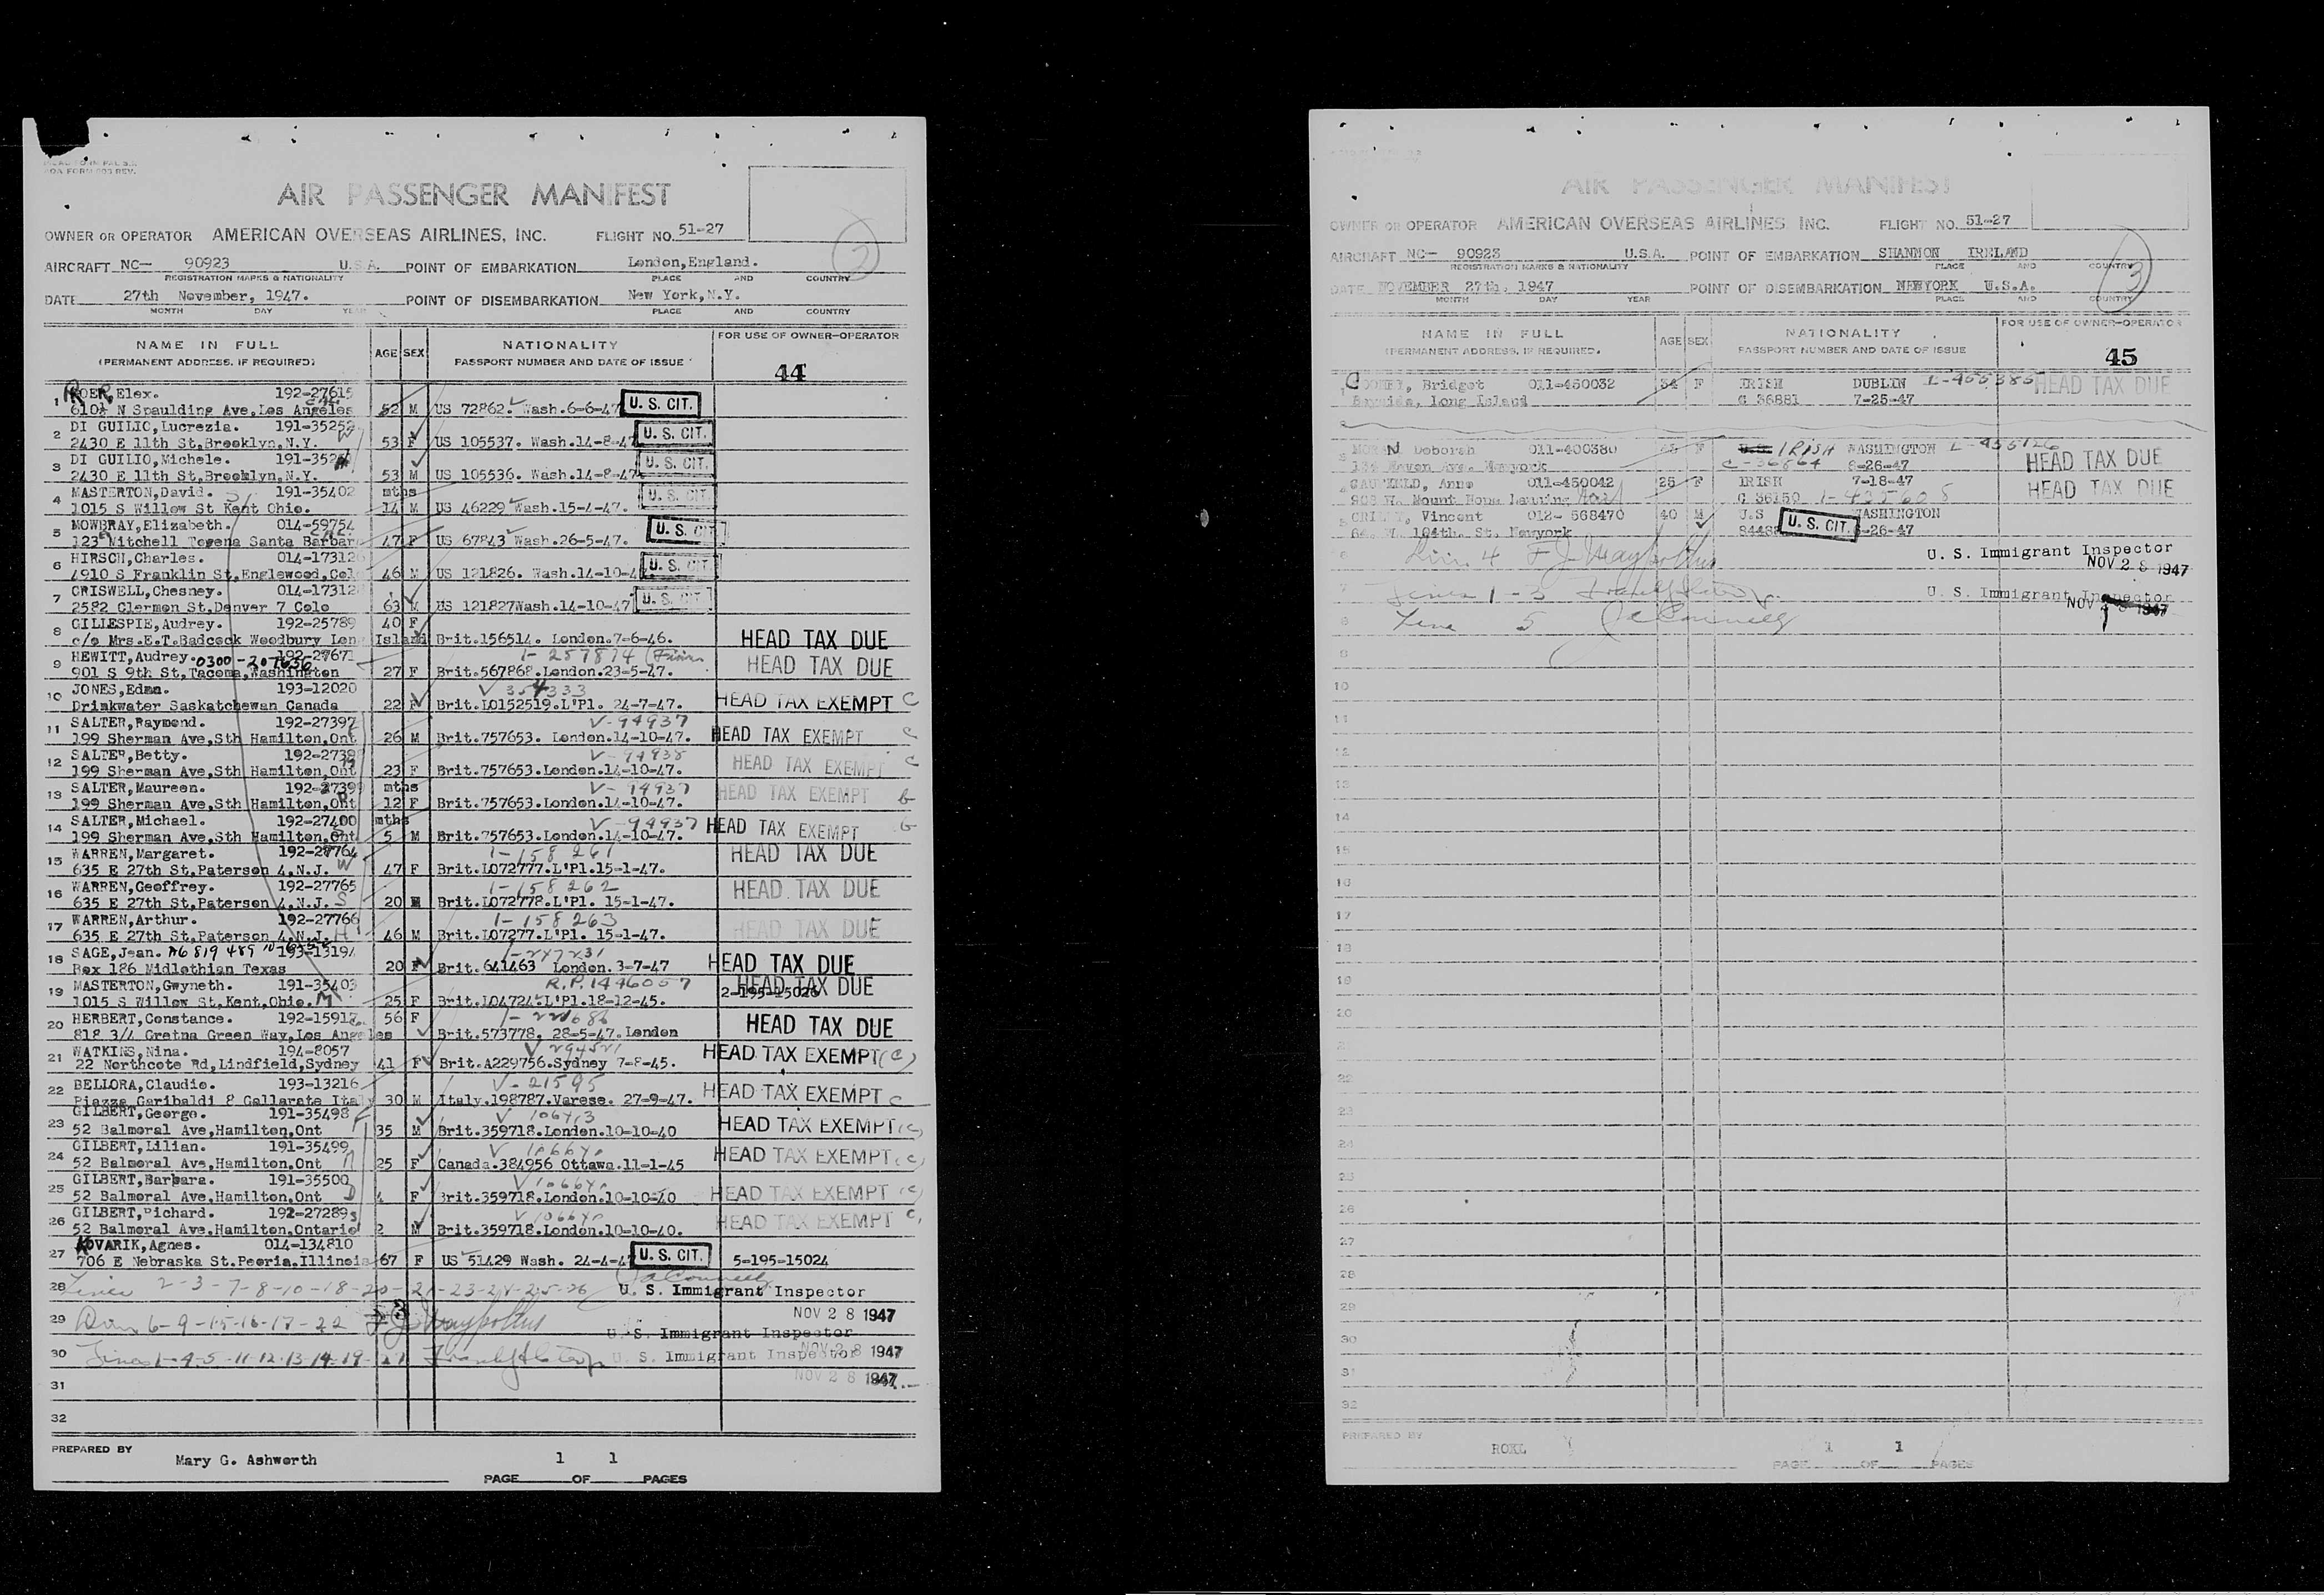 AOA FORM 805 REV.
AIR PASSENGER MANIFEST
OWNER OR OPERATOR AMERICAN OVERSEAS AIRLINES, INC. FLIGHT NO. 51-27
AIRCRAFT NC- 90923 U.S.A. POINT OF EMBARKATION London,England.
REGISTRATION MARKS & NATIONALITY PLACE AND COUNTRY
DATE 27th November, 1947. POINT OF DISEMBARKATION New York,N.Y.
MONTH DAY YEAR PLACE AND COUNTRY
NAME IN FULL AGE SEX NATIONALITY FOR USE OF OWNER-OPERATOR
(PERMANENT ADDRESS, IF REQUIRED) PASSPORT NUMBER AND DATE OF ISSUE
44
1 Elex. 192-27615
610½ N Spaulding Ave,Los Angeles 52 M US 72862. Wash.6-6-47 U. S. CIT.
2 DI GUILIO,Lucrezia. 191-35252
2430 E 11th St,Brooklyn,N.Y. 53 F US 105537. Wash.14-8-47 U. S. CIT.
3 DI GUILIO,Michele.
2430 E 11th St,Brooklyn,N.Y. 53 M US 105536. Wash.14-8-47 U. S. CIT.
4 MASTERTON,David. 191-35402 mths
1015 S Willow St Kent Ohio. 14 M US 46229 Wash.15-4-47. U. S. CIT.
5 MOWBRAY,Elizabeth. 014-59754
123 Mitchell Santa Barbar 47 F US 67843 Wash.26-5-47. U. S. CIT.
6 HIRSCH,Charles. 014-173126
4910 S Franklin St,Englewood,Col 46 M US 121826. Wash.14-10-47 U. S. CIT.
7 CRISWELL,Chesney. 014-17312
2582 Clermon St,Denver 7 Colo 63 M US 121827Wash.14-10-47 U. S. CIT.
8 GILLESPIE,Audrey. 192-25789 40 F
c/o Mrs.E.T.Badcock Woodbury Long Island Brit.156514. London.7-6-46. HEAD TAX DUE
9 HEWITT,Audrey. 0300-207656 192-27671 1-257874
901 S 9th St,Tacoma,Washington 27 F Brit.567868.London.23-5-47. HEAD TAX DUE
10 JONES,Edna. 193-12020 V 354333
Drinkwater Saskatchewan Canada 22 F Brit.LO152519.L'Pl. 24-7-47. HEAD TAX EXEMPT C
11 SALTER,Raymond. 192-27397 V-94937
199 Sherman Ave,Sth Hamilton,Ont 26 M Brit.757653. London.14-10-47. HEAD TAX EXEMPT C
12 SALTER,Betty. 192-27398 V-94938
199 Sherman Ave,Sth Hamilton,Ont 23 F Brit.757653.London.14-10-47. HEAD TAX EXEMPT C
13 SALTER,Maureen. 192-27399 mths V-94937
199 Sherman Ave,Sth Hamilton,Ont 12 F Brit.757653.London.14-10-47. HEAD TAX EXEMPT
14 SALTER,Michael. 192-27400 mths V-94937
199 Sherman Ave,Sth Hamilton,Ont 5 M Brit.757653.London.14-10-47. HEAD TAX EXEMPT
15 WARREN,Margaret. 192-27764 1-158261
635 E 27th St,Paterson 4,N.J. W 47 F Brit.LO72777.L'Pl.15-1-47. HEAD TAX DUE
16 WARREN,Geoffrey. 192-27765 1-158262
635 E 27th St,Paterson 4,N.J. S 20 M Brit.LO72778.L'Pl. 15-1-47. HEAD TAX DUE
17 WARREN,Arthur. 192-27766 1-158263
635 E 27th St,Paterson 4,N.J. H 46 M Brit.LO7277.L'Pl. 15-1-47. HEAD TAX DUE
18 SAGE,Jean. A6 819 485 193-13194 1-247231
Box 186 Midlothian Texas 20 F Brit.641463 London. 3-7-47 HEAD TAX DUE
19 MASTERTON,Gwyneth. 191-35403 R.P.1446057
1015 S Willow St.Kent,Ohio. M 25 F Brit.LO4724.L'Pl.18-12-45. 2-195-15026 HEAD TAX DUE
20 HERBERT,Constance. 192-15917 56 F 1-221686
818 3/4 Gretna Green Way,Los Angeles Brit.573778. 28-5-47. London HEAD TAX DUE
21 WATKINS,Nina. 194-8057 V 294521
22 Northcote Rd,Lindfield,Sydney 41 F Brit.A229756.Sydney 7-8-45. HEAD TAX EXEMPT (C)
22 BELLORA,Claudio. 193-13216 V-21595
Piazza Garibaldi 8 Gallarate Italy 30 M Italy.198787.Varese. 27-9-47. HEAD TAX EXEMPT C
23 GILBERT,George. 191-35498
52 Balmoral Ave,Hamilton,Ont 35 M Brit.359718.London.10-10-40 HEAD TAX EXEMPT (C)
24 GILBERT,Lilian. 191-35499
52 Balmoral Ave,Hamilton,Ont 25 F Canada.384956 Ottawa.11-1-45 HEAD TAX EXEMPT (C)
25 GILBERT,Barbara. 191-35500
52 Balmoral Ave,Hamilton,Ont 4 F Brit.359718.London.10-10-40 HEAD TAX EXEMPT (C)
26 GILBERT,Richard. 192-27289
52 Balmoral Ave,Hamilton,Ontario 2 M Brit.359718.London.10-10-40. HEAD TAX EXEMPT C
27 KOVARIK,Agnes. 014-134810
706 E Nebraska St.Peoria.Illinois 67 F US 51429 Wash. 24-4-47 U. S. CIT. 5-195-15024
28 Lines 2-3-7-8-10-18-20-21-23-24-25-26 U. S. Immigrant Inspector
NOV 28 1947
29 6-9-15-16-17-22 U. S. Immigrant Inspector
30 Lines 1-4-5-11-12-13-14-19-27 U. S. Immigrant Inspector NOV 28 1947
NOV 28 1947
31
32
PREPARED BY Mary G. Ashworth
PAGE 1 OF 1 PAGES
AIR PASSENGER MANIFEST
OWNER OR OPERATOR AMERICAN OVERSEAS AIRLINES, INC. FLIGHT NO. 51-27
AIRCRAFT NC- 90923 U.S.A. POINT OF EMBARKATION SHANNON IRELAND
REGISTRATION MARKS & NATIONALITY PLACE AND COUNTRY
3
DATE NOVEMBER 27th, 1947 POINT OF DISEMBARKATION NEWYORK U.S.A.
MONTH DAY YEAR PLACE AND COUNTRY
NAME IN FULL AGE SEX NATIONALITY FOR USE OF OWNER-OPERATOR
(PERMANENT ADDRESS, IF REQUIRED) PASSPORT NUMBER AND DATE OF ISSUE
45
1 COONEY, Bridget 011-450032 34 F IRISH DUBLIN L-455385 HEAD TAX DUE
Bayside, Long Island C 36881 7-25-47
2
3 Deborah 011-400380 F IRISH WASHINGTON L-455126
134 Haven Ave. Newyork C-36864 8-26-47 HEAD TAX DUE
4 CAUFIELD, Anne 011-450042 25 F IRISH 7-18-47 HEAD TAX DUE
908 W. Mount Hope Lansing C 36150 1-435605
5 Vincent 012-568470 40 M U.S WASHINGTON
W. 104th. St. Newyork U. S. CIT. 26-47
6 Line 4 U. S. Immigrant Inspector
NOV 28 1947
7 Lines 1-3 U. S. Immigrant Inspector
NOV 1947
8 Line 5
9
10
11
12
13
14
15
16
17
18
19
20
21
22
23
24
25
26
27
28
29
30
31
32
PREPARED BY
PAGE 1 OF 1 PAGES